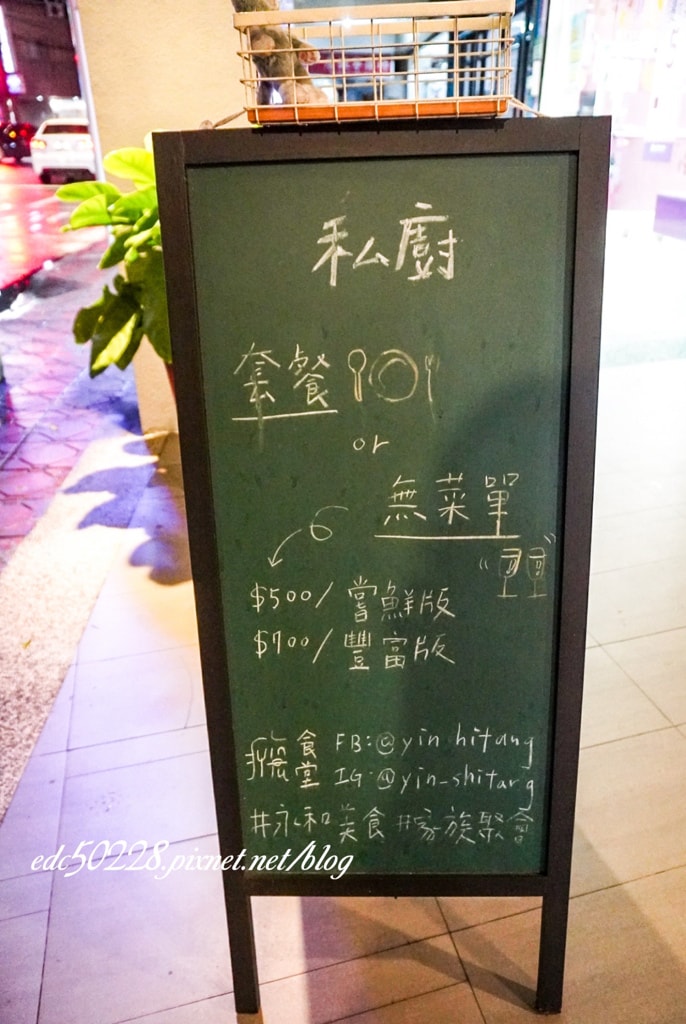 私廚
套餐
or
無菜單
$500/ 嘗鮮版
$700/ 豐富版
食堂
FB:@yinhitang
IG:@yin_shitang
#永和美食 #家族聚會
edc50228.pixnet.net/blog